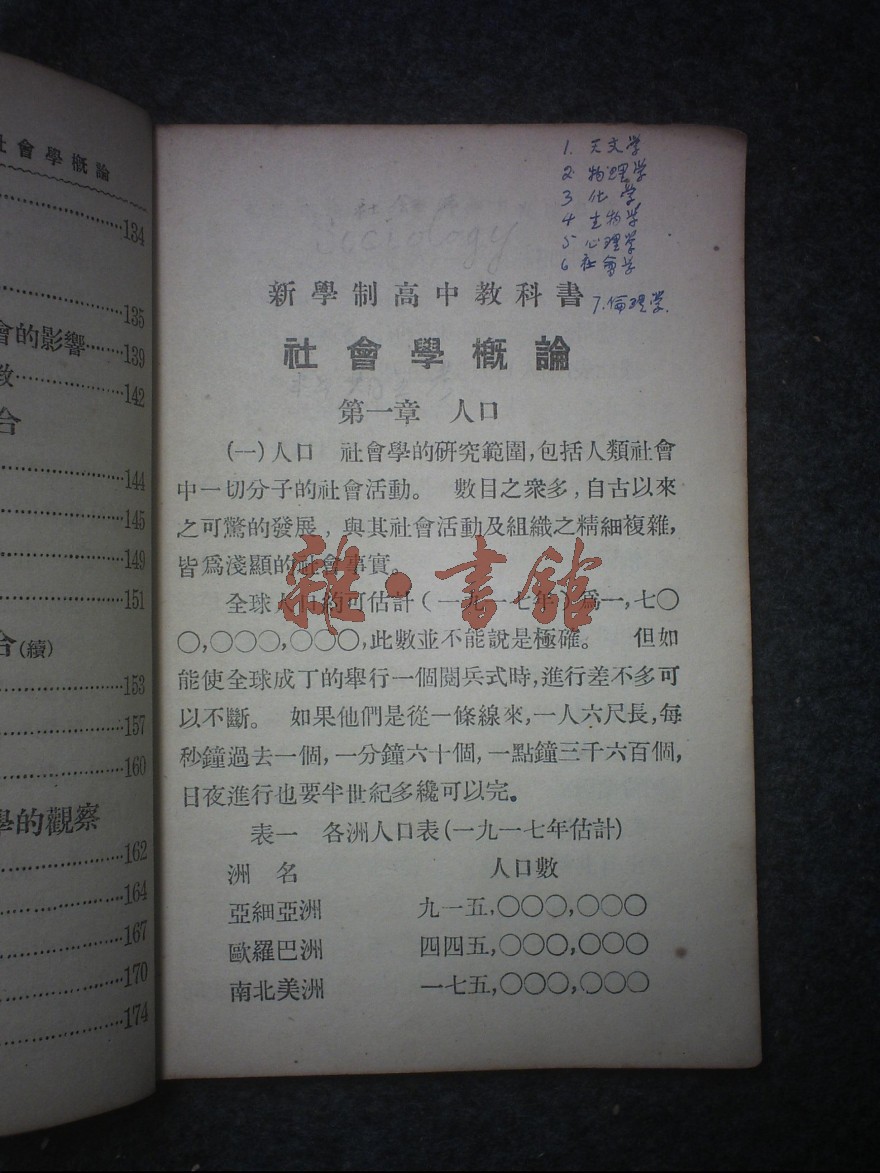 社會學概論
134
135
會的影響……139
142
合
144
145
149
151
合(續)
153
157
160
學的觀察
162
164
167
170
174
1. 天文学
2 物理学
3 化 学
4 生物学
5 心理学
6 社會学
7.倫理学
Sociology
新學制高中教科書
社會學概論
第一章 人口
(一)人口 社會學的研究範圍,包括人類社會
中一切分子的社會活動。 數目之衆多,自古以來
之可驚的發展,與其社會活動及組織之精細複雜,
皆爲淺顯的社會事實。
雜·書館
全球人口的可估計(一九一七年)爲一,七〇
〇,〇〇〇,〇〇〇,此數並不能說是極確。 但如
能使全球成丁的舉行一個閱兵式時,進行差不多可
以不斷。 如果他們是從一條線來,一人六尺長,每
秒鐘過去一個,一分鐘六十個,一點鐘三千六百個,
日夜進行也要半世紀多纔可以完。
表一 各洲人口表(一九一七年估計)
洲 名 人口數
亞細亞洲 九一五,〇〇〇,〇〇〇
歐羅巴洲 四四五,〇〇〇,〇〇〇
南北美洲 一七五,〇〇〇,〇〇〇